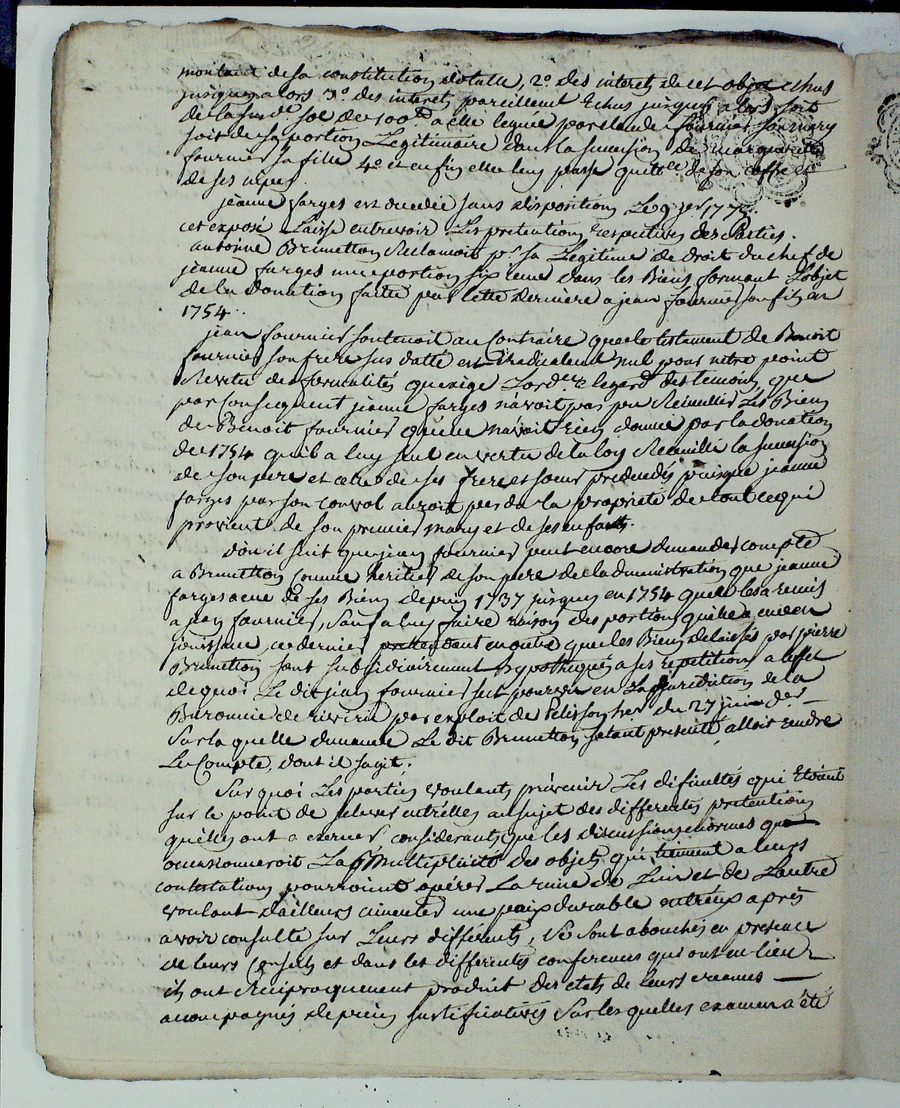 montant de sa constitution dotalle, 2o. des interet de cet objet echus
jusques alors 3o. des interet pareillement Echus jusques a lors soit
de la susde. soe. de 100ll a elle leguée par claude fournier son mary
soit de sa portion Legitimaire dans la sucession de marguerite
fournier sa fille 4o. et enfin elle luy passe quittce de son coffre et
de ses nipes.
jeanne farges est decedée sans disposition Le 9 jer 1775.
cet exposé Laisse entrevoir Les pretentions Respectives des Parties.
antoine Brunetton Reclamoit pr. sa Legitime de droit du chef de
jeanne farges une portion sixieme dans les Biens formant L'objet
de la Donation faitte par cette derniere a jean fournier son fils en
1754.
jean fournier soutenoit au Contraire que le testament de Benoit
fournier son frere sus datté est Radicalemt nul pour n'etre point
Revetu des formalités qu'exige L'ordce. a legard des temoins, que
par Consequent jeanne farges n'avoit pas pu Recueillir Les Biens
de Benoit fournier qu'elle n'avoit rien donné par la donation
de 1754 qu'il a luy seul en vertu de la loy Recueilli la sucession
de son pere et celle de ses frere et soeur predecedés puisque jeanne
farges par son convol auroit perdu la propriété de tout ce qui
provient de son premier mary et de ses enfants.
D'ou il suit que jean fournier peut encore demander compte
a Brunetton Comme heritier de son pere de l'administration que jeanne
farges a eue de ses Biens depuis 1737 jusques en 1754 quelle les a remis
a jean fournier, Sauf a luy faire raison des portions qu'elle a eu en
jouissance, ce dernier pretendant en outre que les Biens delaissés par pierre
Brunetton sont subsidiairement hypothequés a ses repetitions a l'effet
de quoi Le dit jean fournier s'est pourvu en La jurediction de la
Baronnie de riverie par exploit de Pelisson her du 27 juin der
Sur la quelle demande Le dit Brunetton s'etant presenté, alloit rendre
Le Compte, dont il s'agit.
Sur quoi Les parties voulants prévenir Les dificultés qui Etoient
sur le point de selever entr'elles au sujet des differentes pretentions
qu'elles ont a exercer, considerants que les discussions enormes que
occasionneroit La Multiplicité des objets qui tiennent a leurs
contestations pourroient opérer La ruine de L'un et de L'autre
voulant d'ailleurs cimenter une paix durable entreux après
avoir consulté sur Leurs differents, Se Sont abouchés en presence
de leurs Conseils et dans les differentes conferences qui ont eu lieu
ils ont Réciproquement produit des etats de leurs creances
accompagnés de pieces justificatives Sur les quelles examen a été